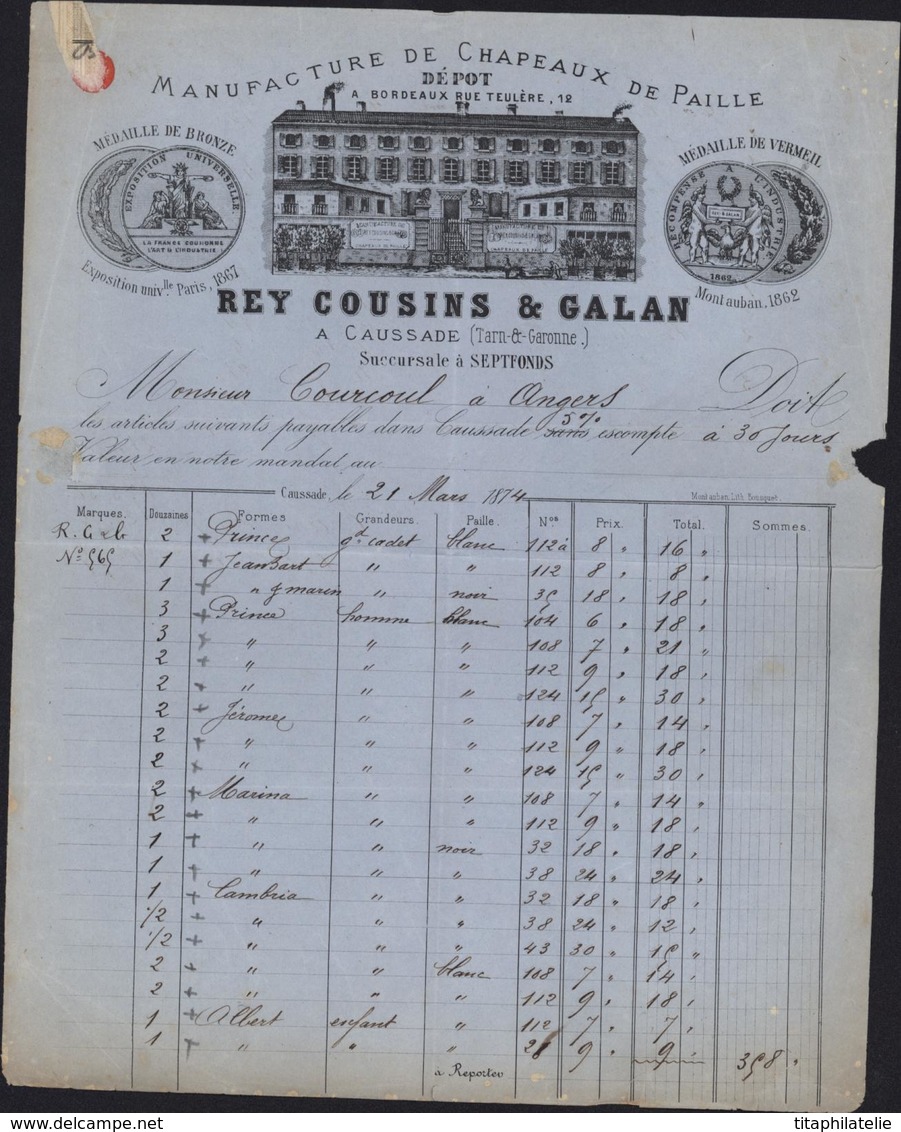 MANUFACTURE DE CHAPEAUX DE PAILLE
DÉPOT
A BORDEAUX RUE TEULÈRE, 12
MÉDAILLE DE BRONZE
EXPOSITION UNIVERSELLE
LA FRANCE COURONNE
L'ART & L'INDUSTRIE
Exposition univ.lle Paris, 1867
MÉDAILLE DE VERMEIL
RÉCOMPENSE A L'INDUSTRIE
1862
Montauban, 1862
REY COUSINS & GALAN
A CAUSSADE (Tarn-&-Garonne.)
Succursale à SEPTFONDS
Monsieur Courcoul à Angers Doit
les articles suivants payables dans Caussade sans 5% escompte à 30 Jours
Valeur en notre mandat au
Caussade, le 21 Mars 1874
Montauban, Lith. Bousquet.
Marques. Douzaines Formes Grandeurs. Paille. Nos Prix. Total. Sommes.
2 + Prince gd cadet blanc 112 à 8 " 16 "
No 565 1 + Jean Bart " " 112 8 " 8 "
1 + " marin " noir 35 18 " 18 "
3 + Prince homme blanc 104 6 " 18 "
3 + " " " 108 7 " 21 "
2 + " " " 112 9 " 18 "
2 + " " " 124 15 " 30 "
2 + Jérome " " 108 7 " 14 "
2 + " " " 112 9 " 18 "
2 + " " " 124 15 " 30 "
2 + Marina " " 108 7 " 14 "
2 + " " " 112 9 " 18 "
1 + " " noir 32 18 " 18 "
1 + " " " 38 24 " 24 "
1 + Cambria " " 32 18 " 18 "
1/2 + " " " 38 24 " 12 "
1/2 + " " " 43 30 " 15 "
2 + " " blanc 108 7 " 14 "
2 + " " " 112 9 " 18 "
1 + Albert enfant " 112 7 " 7 "
1 + " " " 28 9 " 9 " 358 "
à Reporter
titaphilatelie